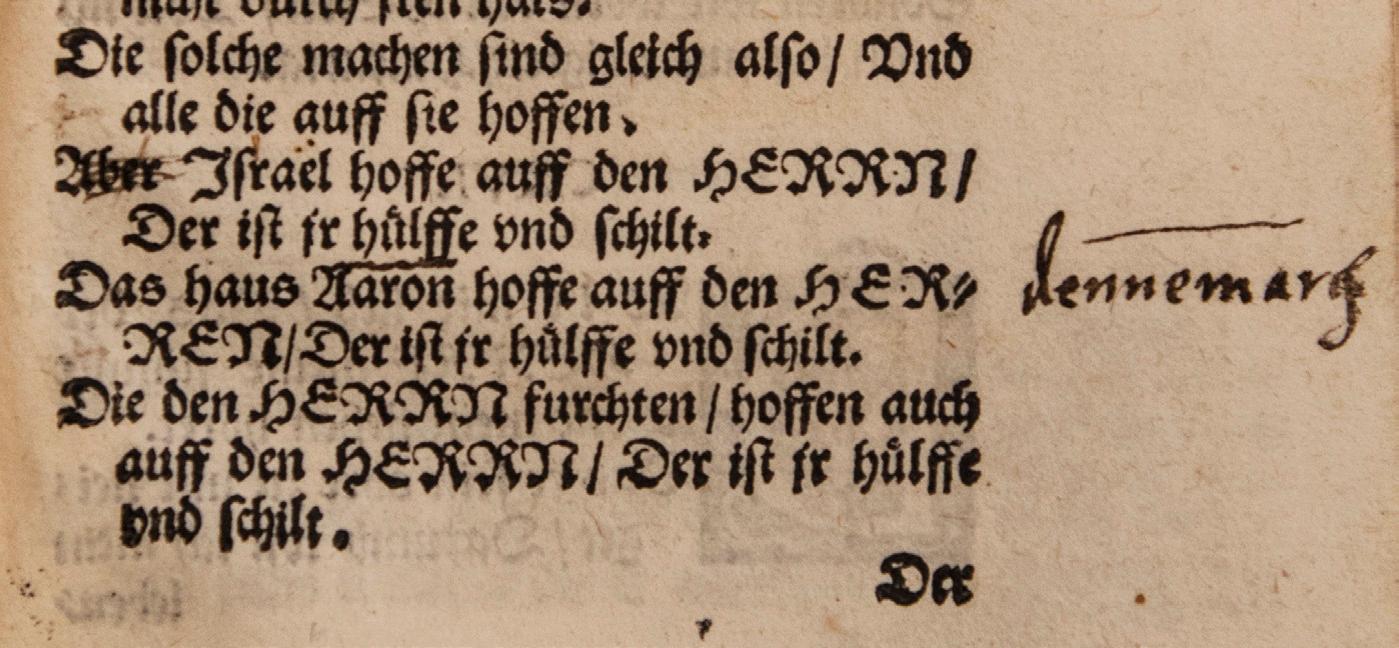 nicht durch jren hals.
Die ſolche machen ſind gleich alſo/ Vnd
alle die auff ſie hoffen.
Aber Iſrael hoffe auff den HERRN/
Der iſt jr hülffe vnd ſchilt.
Das haus Aaron hoffe auff den HER⸗
REN/Der iſt jr hülffe vnd ſchilt.
dennemarg
Die den HERRN furchten / hoffen auch
auff den HERRN/ Der iſt jr hülffe
vnd ſchilt.
Der